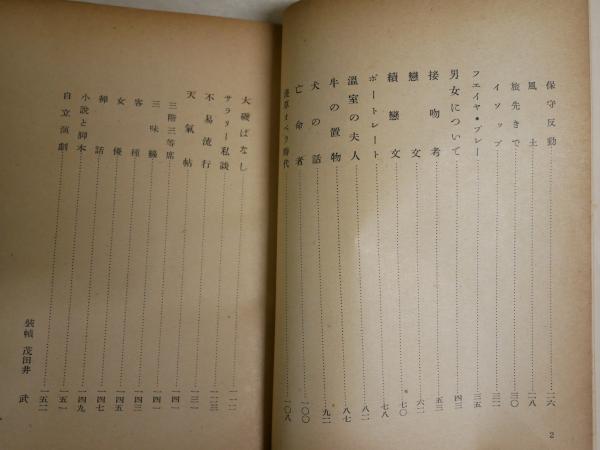 保守反動……二六
風土……二八
旅先きで……三〇
イソップ……三二
フエイヤ・プレー……三五
男女について……四三
接吻考……五三
戀文……六二
續戀文……七〇
ポートレート……七八
溫室の夫人……八二
牛の置物……八七
犬の話……九二
亡命者……一〇〇
淺草オペラ時代……一〇八
2
大磯ばなし……一一二
サラリー私談
不易流行……一二三
天氣帖……一三一
三階三等席……一四一
三味線……一四一
客種……一四三
女優……一四五
禅話……一四七
小説と脚本……一四九
自立演劇……一五一
裝幀 茂田井 武